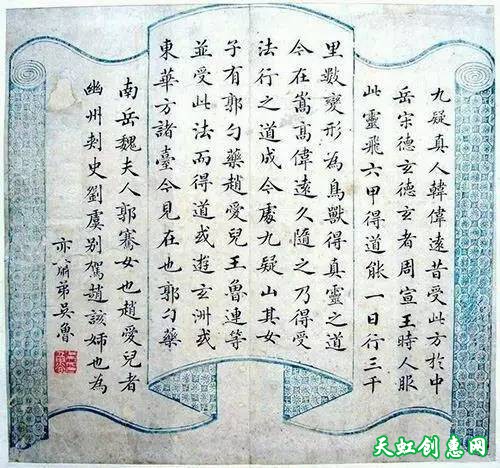 九疑真人韓偉遠昔受此方於中
岳宗德玄德玄者周宣王時人服
此靈飛六甲得道能一日行三千
里數變形為鳥獸得真靈之道
今在嵩高偉遠久隨之乃得受
法行之道成今處九疑山其女
子有郭勺藥趙愛兒王魯連等
並受此法而得道或遊玄洲或
東華方諸臺今見在也郭勺藥
南岳魏夫人郭騫女也趙愛兒者
幽州刺史劉虞別駕趙該姊也為
吳魯
天虹创惠网